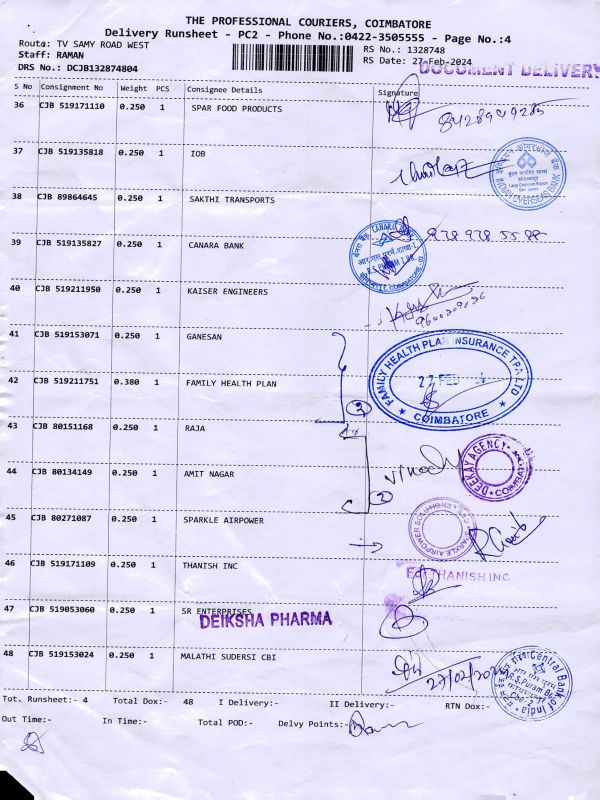 THE PROFESSIONAL COURIERS, COIMBATORE
Delivery Runsheet - PC2 - Phone No.:0422-3505555 - Page No.:4
Route: TV SAMY ROAD WEST
RS No.: 1328748
Staff: RAMAN
RS Date: 27-Feb-2024
DRS No.: DCJB132874804
DOCUMENT DELIVERY
S No Consignment No Weight PCS Consignee Details Signature
36 CJB 519171110 0.250 1 SPAR FOOD PRODUCTS
37 CJB 519135818 0.250 1 IOB
INDIAN OVERSEAS BANK
38 CJB 89864645 0.250 1 SAKTHI TRANSPORTS
39 CJB 519135827 0.250 1 CANARA BANK
978 978 55 88
CANARA
40 CJB 519211950 0.250 1 KAISER ENGINEERS
41 CJB 519153071 0.250 1 GANESAN
FAMILY HEALTH PLAN INSURANCE TPA LTD
27 FEB
COIMBATORE
42 CJB 519211751 0.380 1 FAMILY HEALTH PLAN
2
43 CJB 80151168 0.250 1 RAJA
DEEKAY AGENCY
44 CJB 80134149 0.250 1 AMIT NAGAR
2
45 CJB 80271087 0.250 1 SPARKLE AIRPOWER
SPARKLE AIRPOWER SOLUTIONS
46 CJB 519171109 0.250 1 THANISH INC
THANISH INC
47 CJB 519053060 0.250 1 SR ENTERPRISES
DEIKSHA PHARMA
48 CJB 519153024 0.250 1 MALATHI SUDERSI CBI
27/02/2024
Central Bank of India
Tot. Runsheet:- 4 Total Dox:- 48 I Delivery:- II Delivery:- RTN Dox:-
Out Time:- In Time:- Total POD:- Delvy Points:-